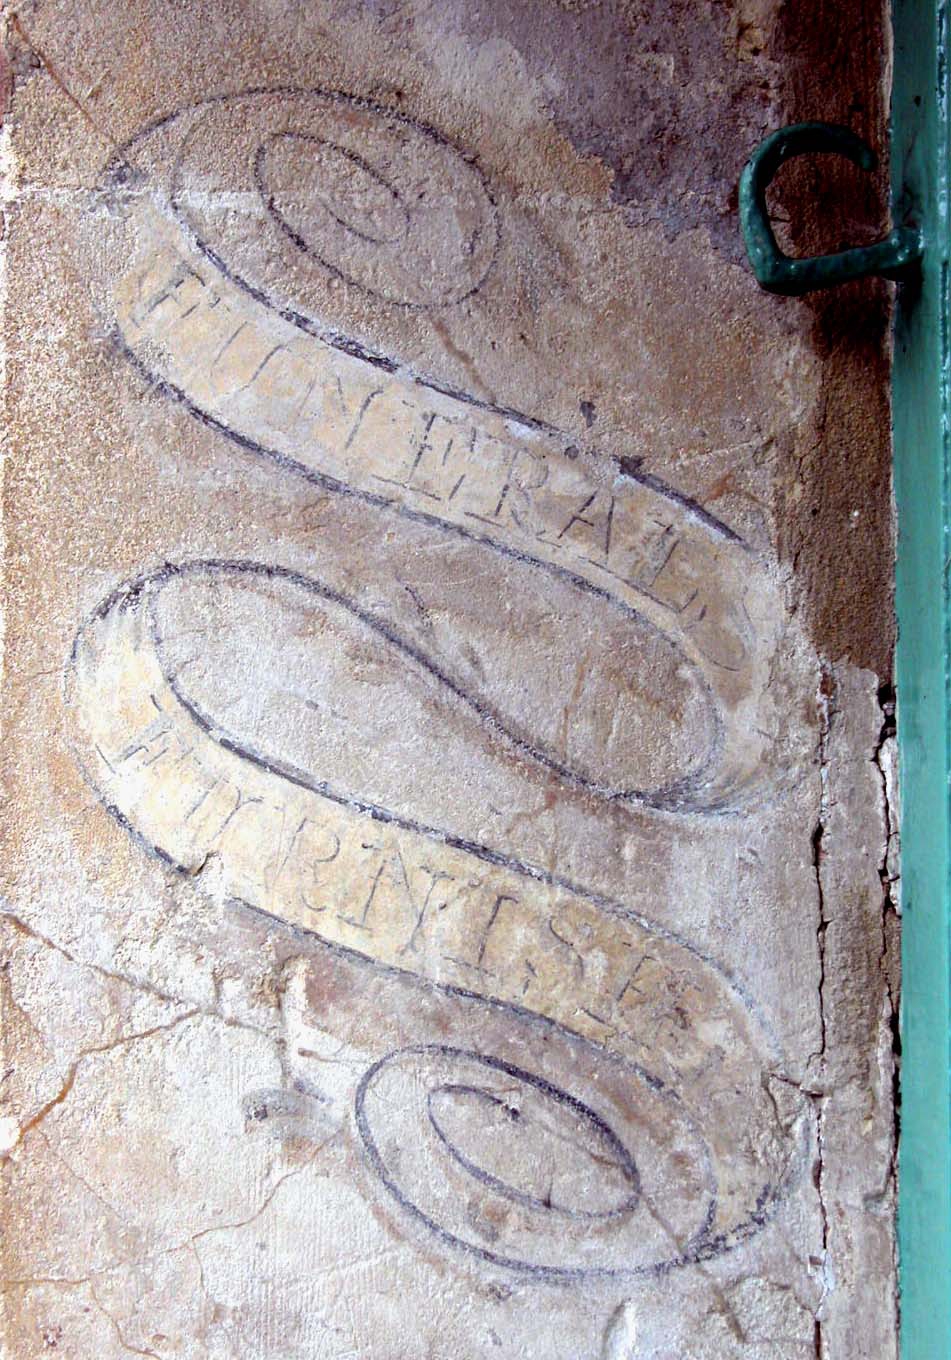 FUNERALS
FURNISHED